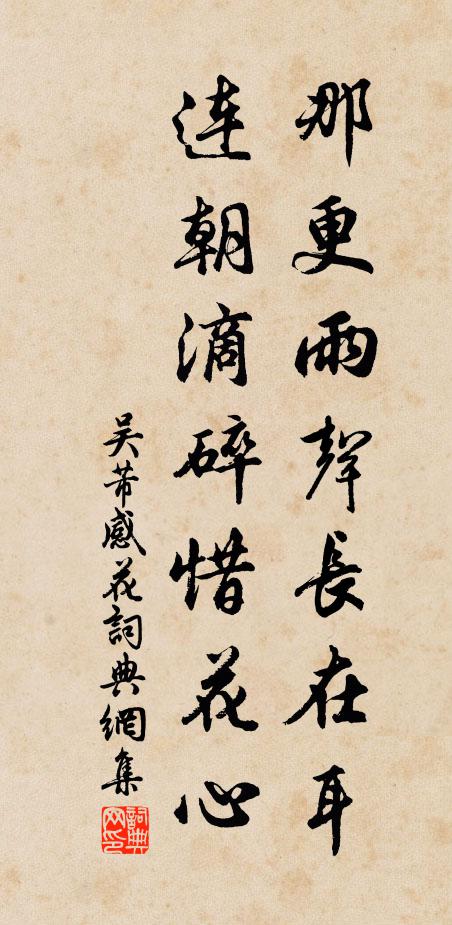 那更雨聲長在耳
連朝滴碎惜花心
吴芾感花詞典網集
詞典网印